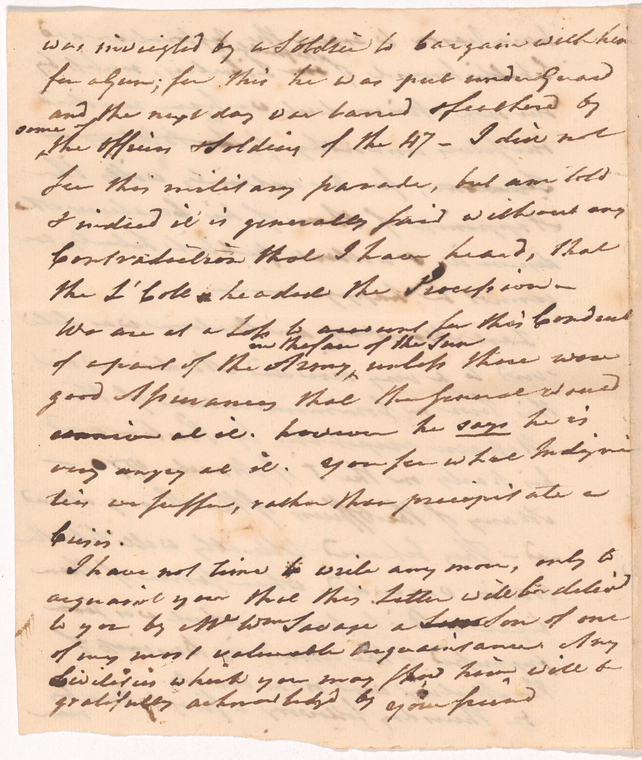 was inveigled by a Soldier to bargain with him
for a Gun; for this he was put under Guard
and the next day was tarred & featherd by
some
the Officers & Soldiers of the 47 - I did not
see this military parade, but am told
& indeed it is generally said without any
Contradiction that I have heard, that
the Lt Coll headed the Procession -
We are at a Loss to account for this Conduct
in the face of the Sun
of a part of the Army, unless there were
good Assurances that the General would
connive at it. however he says he is
very angry at it. You see what Indigni
ties we suffer, rather than precipitate a
Crisis.
I have not time to write any more, only to
acquaint you that this Letter will be deliverd
to you by Mr Wm Savage a Son of one
of my most valueable Acquaintance. Any
Civilities which you may show him will be
gratefully acknowledgd by your friend